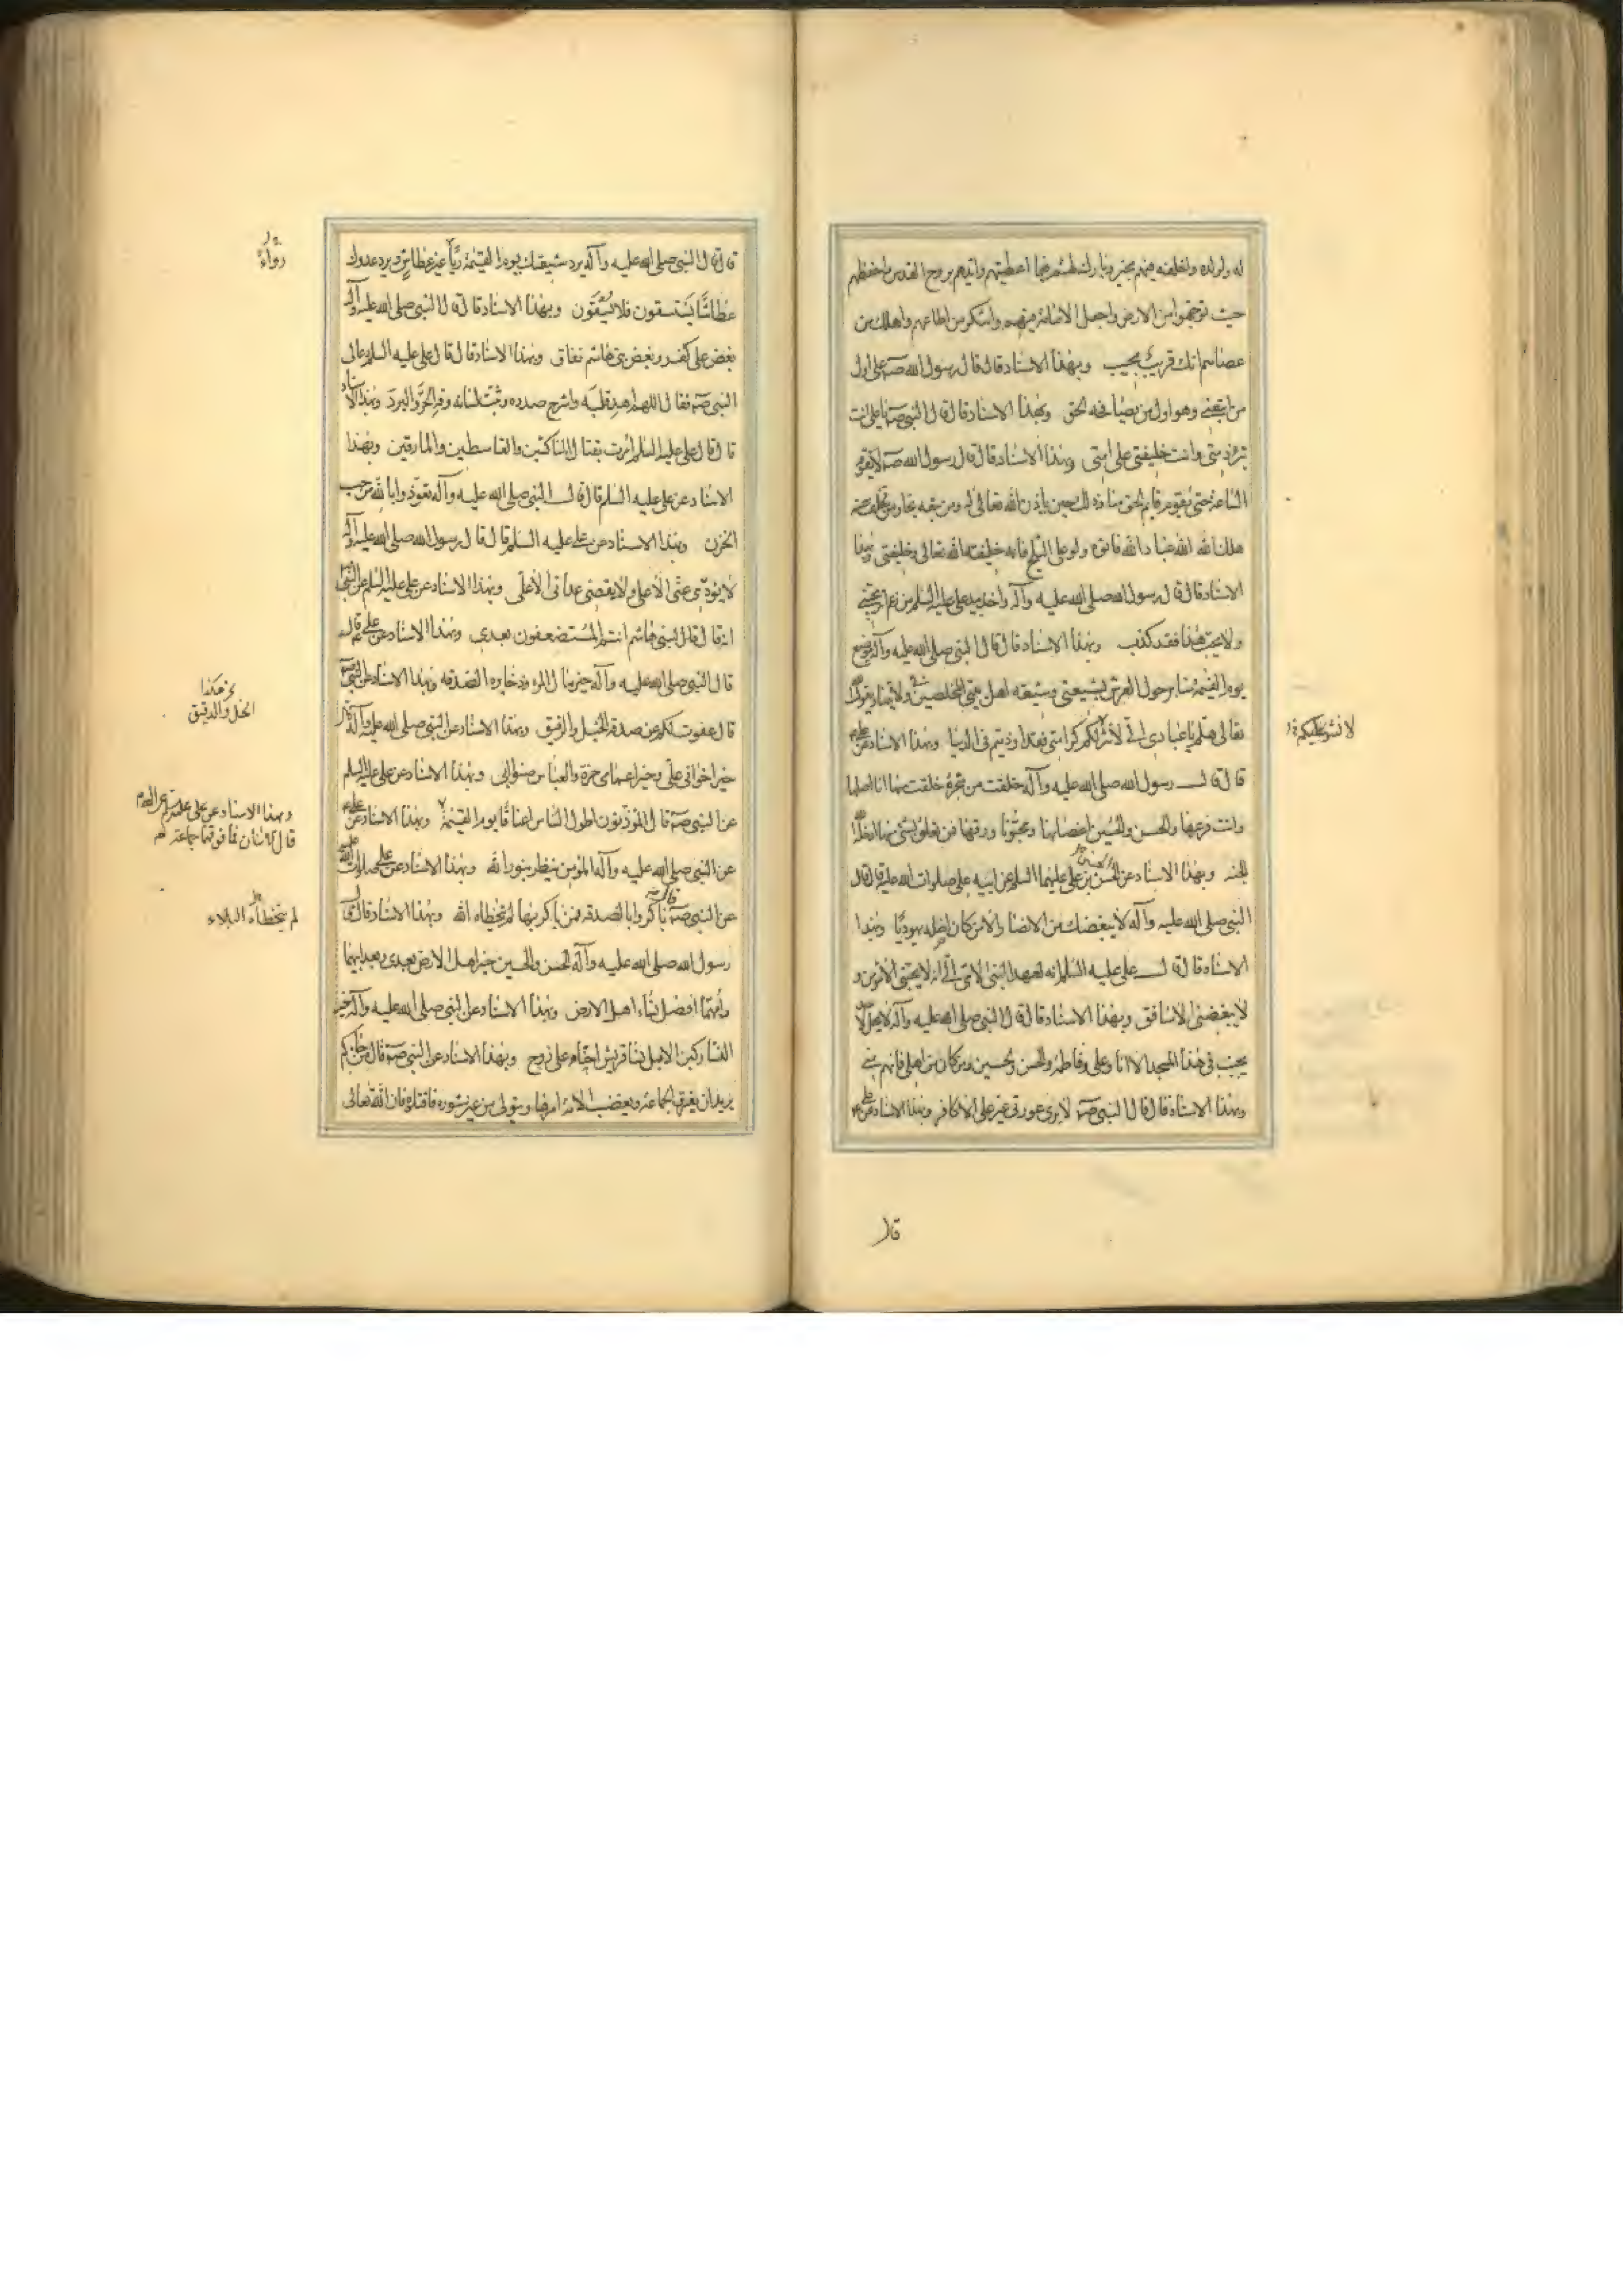 له ولولده واخلفه فيهم بخير وبارك لهم فيما اعطيتهم وايدهم بروح القدس واحفظهم
حيث توجهوا من الارض واجعل الامامة فيهم واشكر من اطاعهم واهلك من
عصاهم انك قريب مجيب وبهذا الاسناد قال قال رسول الله صه على اول
من اتبعني وهو اول من يصافحه الحق وبهذا الاسناد قال قال النبي صه يا على انت
تبرئ ذمتي وانت خليفتي على امتي وبهذا الاسناد قال قال رسول الله صه لا تقوم
الساعة حتى يقوم قايم الحق منا وذلك حين ياذن الله تعالى له ومن تبعه نجا ومن تخلف عنه
هلك الله الله عباد الله فاتوه ولو على الثلج فانه خليفة الله تعالى وخليفتي وبهذا
الاسناد قال قال رسول الله صلى الله عليه وآله واخذ بيد على عليه السلم من زعم انه يحبني
ولا يحب هذا فقد كذب وبهذا الاسناد قال قال النبي صلى الله عليه وآله توضع
يوم القيمة منابر حول العرش لشيعتي وشيعة اهل بيتي المخلصين في ولايتنا ويقول الله
تعالى هلم يا عبادى الى لانشر عليكم كرامتي فقد اوذيتم في الدنيا وبهذا الاسناد عن على
قال قال رسول الله صلى الله عليه وآله خلقت من شجرة خلقت منها انا اصلها
وانت فرعها والحسن والحسين اغصانها ومحبونا ورقها فمن تعلق بشئ منها ادخله الله
الجنة وبهذا الاسناد عن الحسن بن على عليهما السلم عن ابيه على صلوات الله عليه قال قال
النبي صلى الله عليه وآله لا يبغضك من الانصار الا من كان اصله يهوديا وبهذا
الاسناد قال قال على عليه السلم انه لعهد النبي الامي الى انه لا يحبني الا مؤمن و
لا يبغضني الا منافق وبهذا الاسناد قال قال النبي صلى الله عليه وآله لا يحل لاحد
يجنب في هذا المسجد الا انا وعلى وفاطمة والحسن والحسين ومن كان من اهلى فانهم مني
وبهذا الاسناد قال قال النبي صه لا يرى عورتي غير على الا كافر وبهذا الاسناد عن على
قال
قال قال النبي صلى الله عليه وآله يرد شيعتك يوم القيمة رياً غير عطاش ويرد عدوك
عطاشاً يستسقون فلا يُسْقَون وبهذا الاسناد قال قال النبي صلى الله عليه وآله
بغض على كفر وبغض بني هاشم نفاق وبهذا الاسناد قال قال على عليه السلم دعا لى
النبي صه فقال اللهم اهد قلبه واشرح صدره وثبت لسانه وقه الحر والبرد وبهذا الاسناد
قال قال على عليه السلم امرت بقتال الناكثين والقاسطين والمارقين وبهذا
الاسناد عن على عليه السلم قال قال النبي صلى الله عليه وآله تعوذوا بالله من حب
الحزن وبهذا الاسناد عن على عليه السلم قال قال رسول الله صلى الله عليه وآله
لا يؤدى عني الا على ولا يقضى عداتى الا على وبهذا الاسناد عن على عليه السلم عن النبي
انه قال لبني هاشم انتم المستضعفون بعدى وبهذا الاسناد عن على قال
قال النبي صلى الله عليه وآله خير مال المرء وذخايره الصدقه وبهذا الاسناد عن النبي صه
قال عفوت لكم عن صدقة الخيل والرقيق وبهذا الاسناد عن النبي صلى الله عليه وآله قال
خير اخوانى على وخير اعمامى حمزة والعباس صنو ابى وبهذا الاسناد عن على عليه السلم
عن النبي صه قال المؤذنون اطول الناس اعناقاً يوم القيمة وبهذا الاسناد عن على
عن النبي صلى الله عليه وآله المؤمن ينظر بنور الله وبهذا الاسناد عن على صلوات الله عليه
عن النبي صه قال باكروا بالصدقه فمن باكر بها لم يتخطاه الله وبهذا الاسناد قال قال
رسول الله صلى الله عليه وآله الحسن والحسين خير اهل الارض بعدى وبعد ابيهما
وامهما افضل نساء اهل الارض وبهذا الاسناد عن النبي صلى الله عليه وآله خير
نساء ركبن الابل نساء قريش احناه على زوج وبهذا الاسناد عن النبي صه قال من جاءكم
يريد ان يفرق الجماعة ويغضب الامة امرها ويتولى من غير مشورة فاقتلوه فان الله تعالى
رواءً
الخيل والدقيق
وبهذا الاسناد عن على
قال الاثنان فما فوقهما جماعة
لم يتخطاه البلاء